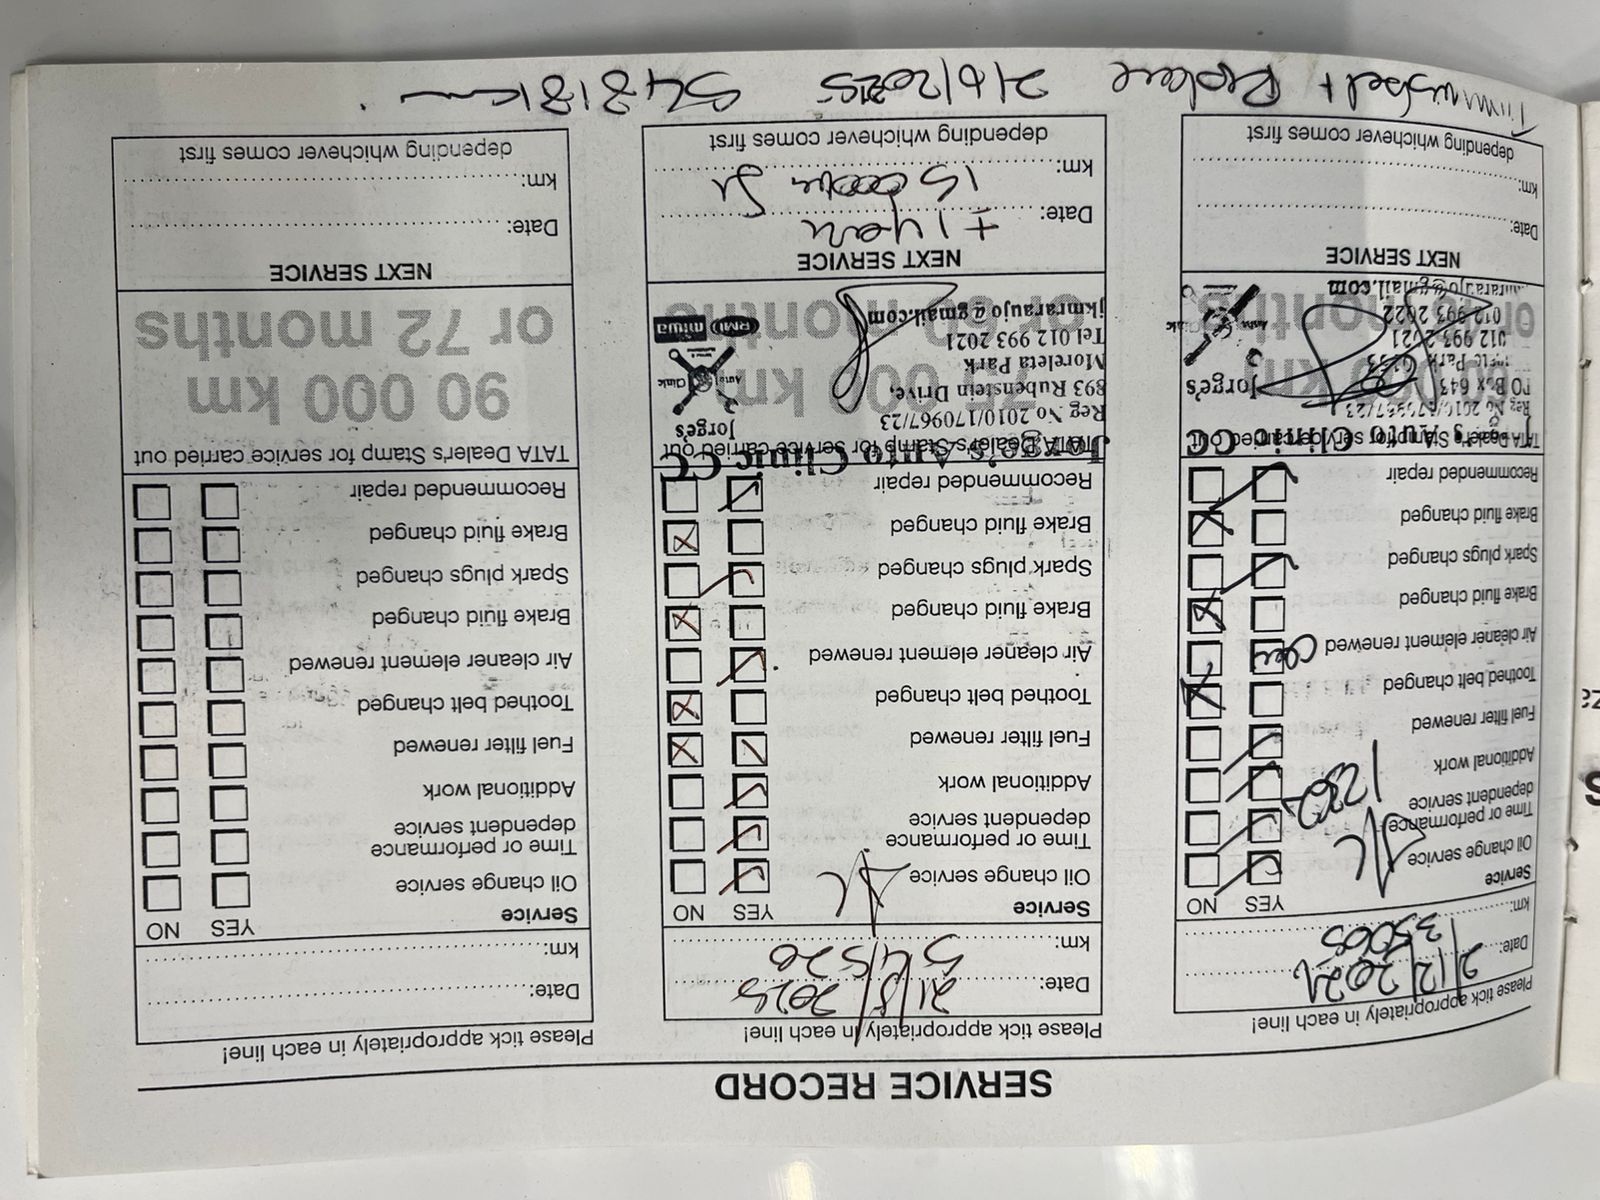 SERVICE RECORD
Please tick appropriately in each line!
Date: 2/12/2024
km: 35065
Service YES NO
Oil change service
Time or performance
dependent service
Additional work
Fuel filter renewed
Toothed belt changed
Air cleaner element renewed
Brake fluid changed
Spark plugs changed
Brake fluid changed
Recommended repair
TATA Dealer's Stamp for service carried out
Jorge's Auto Clinic CC
PO Box 643
012 993 2021
012 993 2022
Jorge's
NEXT SERVICE
Date:
km:
depending whichever comes first
Please tick appropriately in each line!
Date: 21/5/2025
km: 54520
Service YES NO
Oil change service
Time or performance
dependent service
Additional work
Fuel filter renewed
Toothed belt changed
Air cleaner element renewed
Brake fluid changed
Spark plugs changed
Brake fluid changed
Recommended repair
TATA Dealer's Stamp for service carried out
Jorge's Auto Clinic CC
Reg No 2010/170967/23
893 Rubenstein Drive,
Moreleta Park
Tel.012 993 2021
jkmraraujo@gmail.com
Jorge's
Auto Clinic
RMI
miwa
NEXT SERVICE
Date: ± 1 year
km: 15 000km
depending whichever comes first
Please tick appropriately in each line!
Date:
km:
Service YES NO
Oil change service
Time or performance
dependent service
Additional work
Fuel filter renewed
Toothed belt changed
Air cleaner element renewed
Brake fluid changed
Spark plugs changed
Brake fluid changed
Recommended repair
TATA Dealer's Stamp for service carried out
90 000 km
or 72 months
NEXT SERVICE
Date:
km:
depending whichever comes first